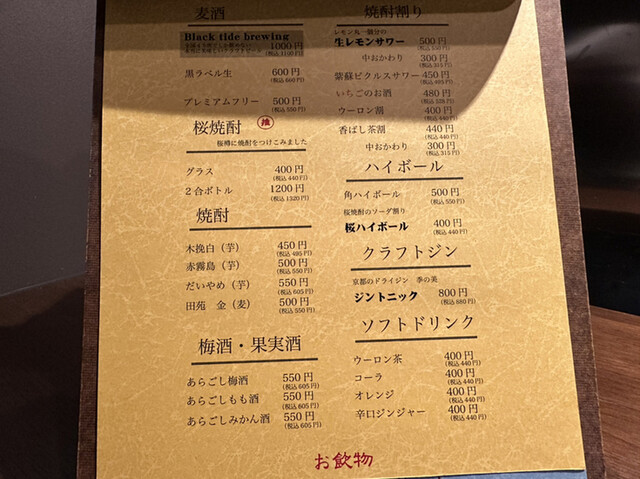 麦酒
Black tide brewing 1000円
(税込1100円)
黒ラベル生 600円
(税込660円)
プレミアムフリー 500円
(税込550円)
桜焼酎
桜樽に焼酎をつけこみました
グラス 400円
(税込440円)
2合ボトル 1200円
(税込1320円)
焼酎
木挽白(芋) 450円
(税込495円)
赤霧島(芋) 500円
(税込550円)
だいやめ(芋) 550円
(税込605円)
田苑 金(麦) 500円
(税込550円)
梅酒・果実酒
あらごし梅酒 550円
(税込605円)
あらごしもも酒 550円
(税込605円)
あらごしみかん酒 550円
(税込605円)
焼酎割り
レモン丸一個分の
生レモンサワー 500円
(税込550円)
中おかわり 300円
(税込315円)
紫蘇ピクルスサワー 450円
(税込495円)
いちごのお酒 480円
(税込528円)
ウーロン割 400円
(税込440円)
香ばし茶割 440円
(税込440円)
中おかわり 300円
(税込315円)
ハイボール
角ハイボール 500円
(税込550円)
桜焼酎のソーダ割り
桜ハイボール 400円
(税込440円)
クラフトジン
京都のドライジン 季の美
ジントニック 800円
(税込880円)
ソフトドリンク
ウーロン茶 400円
(税込440円)
コーラ 400円
(税込440円)
オレンジ 400円
(税込440円)
辛口ジンジャー 400円
(税込440円)
お飲物